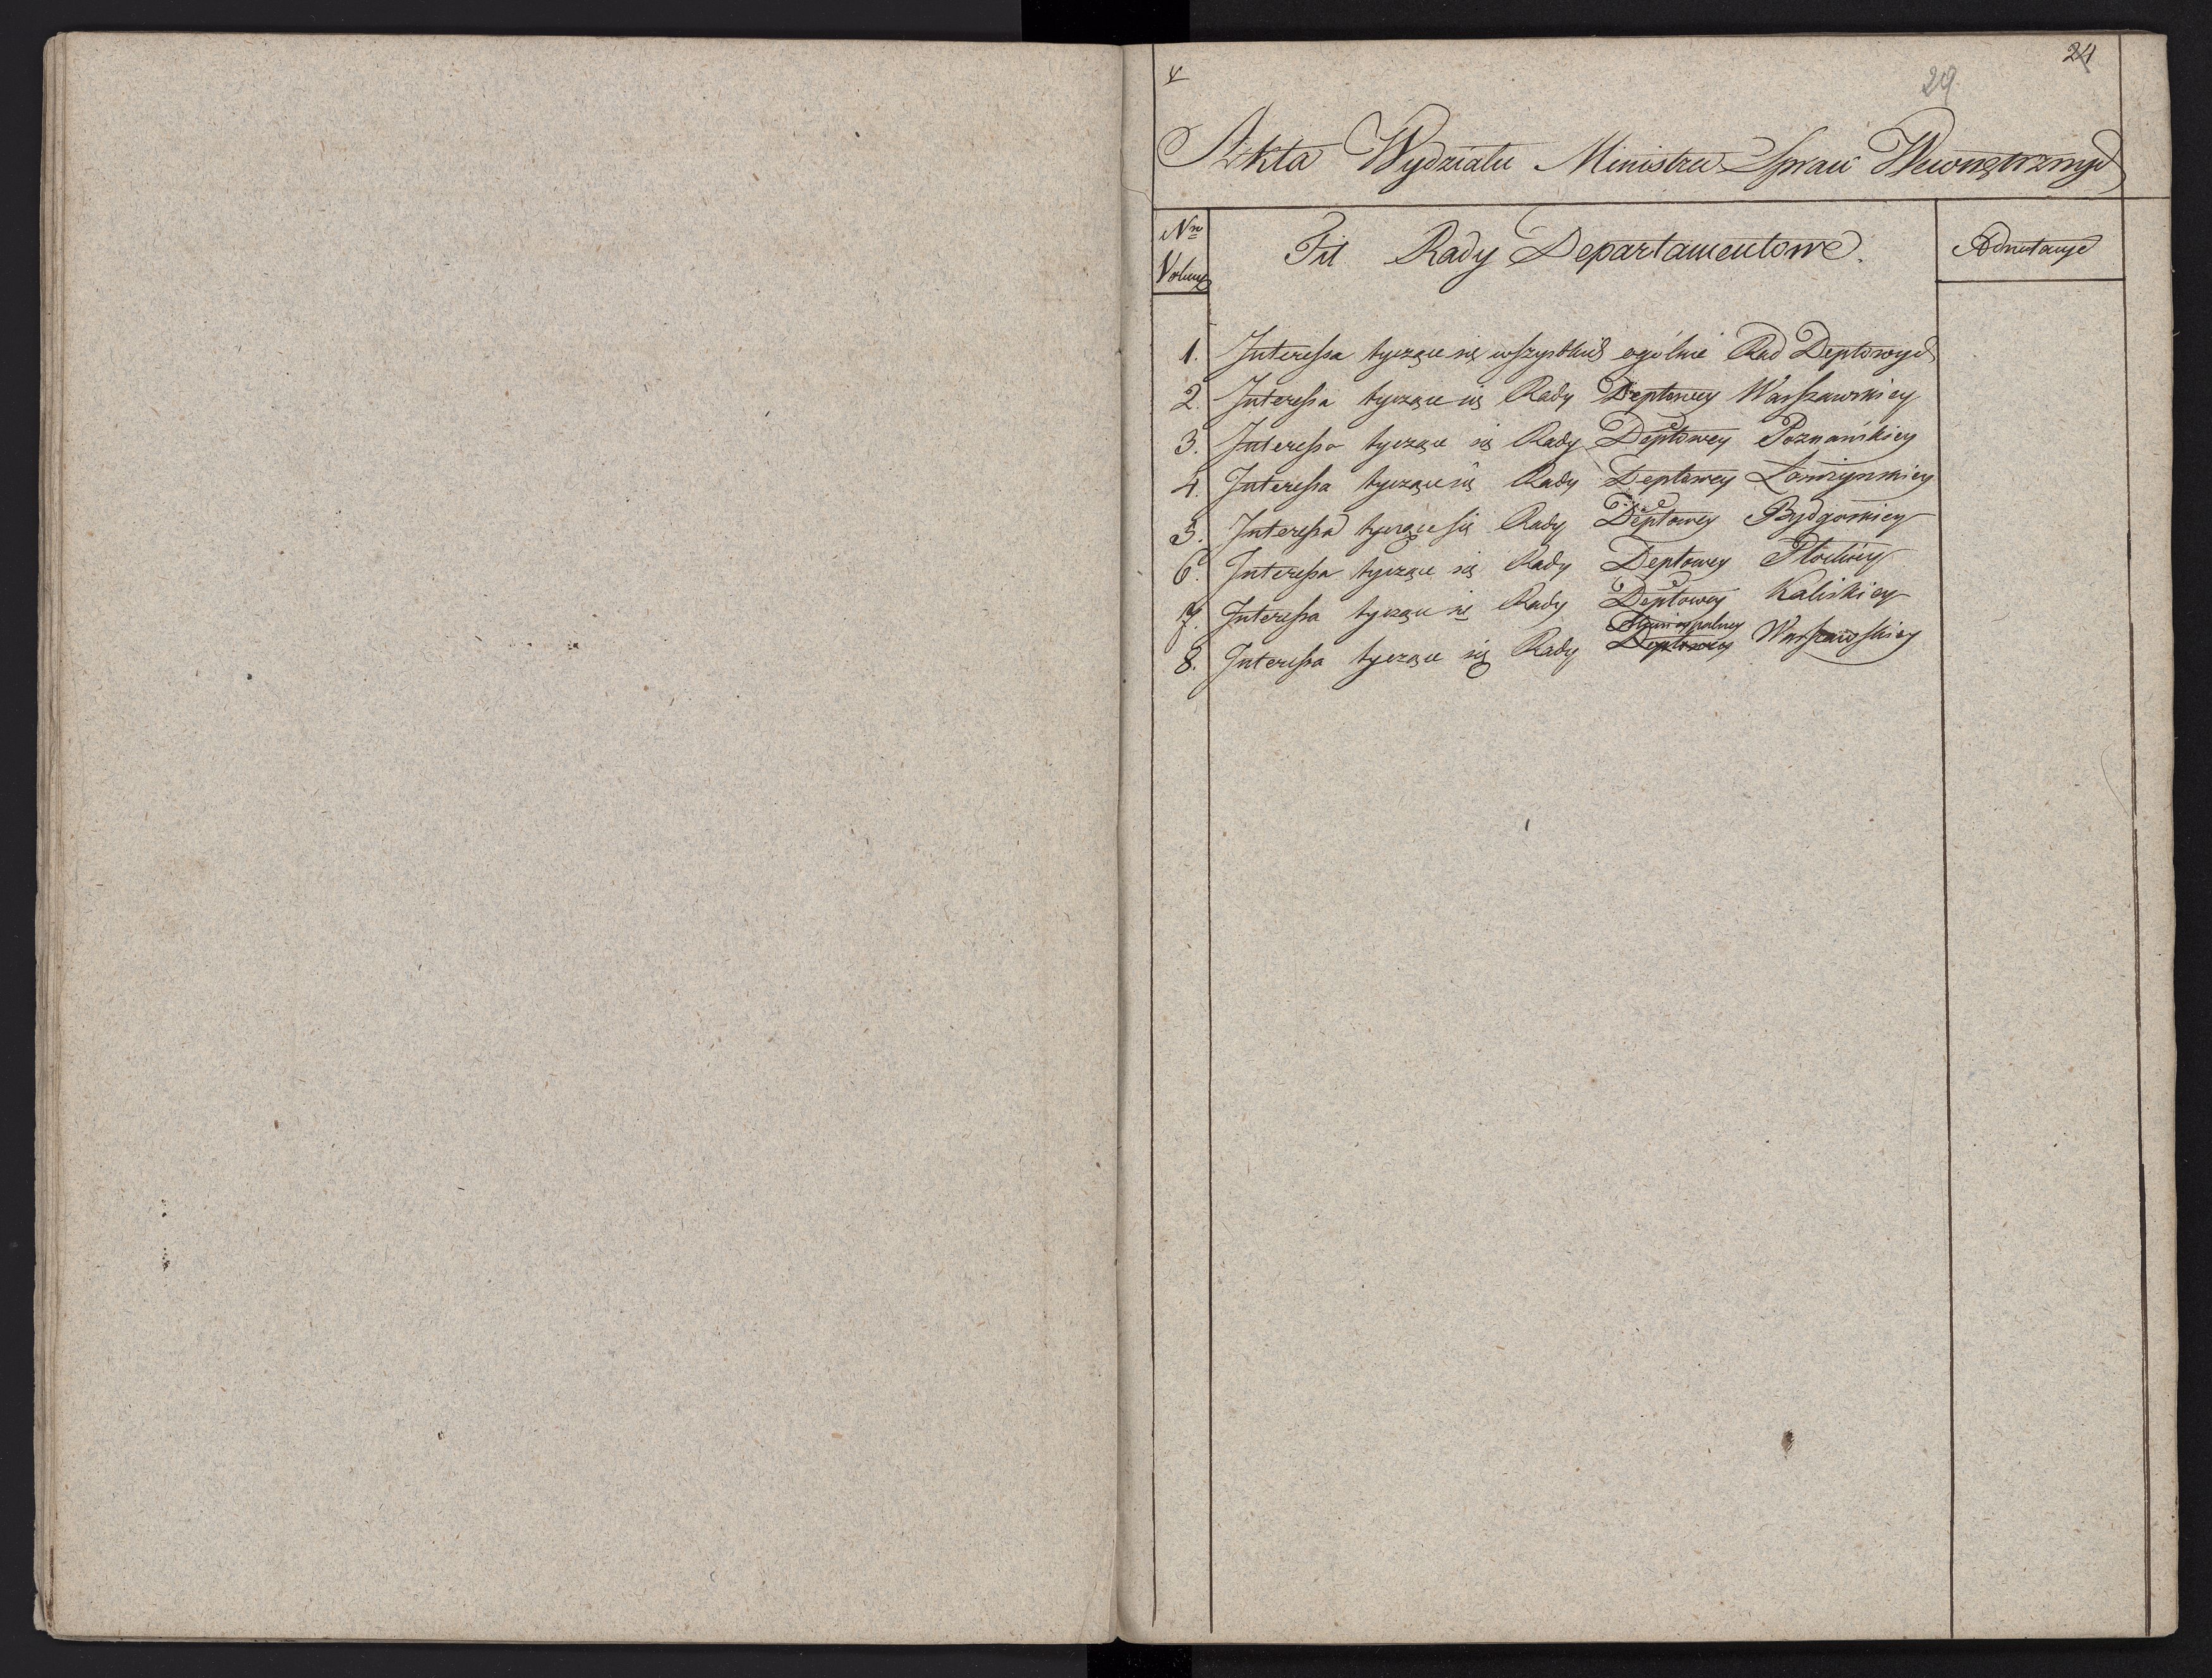 24
29
Akta Wydziału Ministra Spraw Wewnętrznych
Nro Volum
Tit Rady Departamentowe.
Adnotacye
1. Interessa tyczące się wszystkich ogólnie Rad Deptowych
2. Interessa tyczące się Rady Deptowey Warszawskiey
3. Interessa tyczące się Rady Deptowey Poznańskiey
4. Interessa tyczące się Rady Deptowey Łomżyńskiey
5. Interessa tyczące się Rady Deptowey Bydgoskiey
6. Interessa tyczące się Rady Deptowey Płockiey
7. Interessa tyczące się Rady Deptowey Kaliskiey
Municypalney
8. Interessa tyczące się Rady Deptowey Warszawskiey